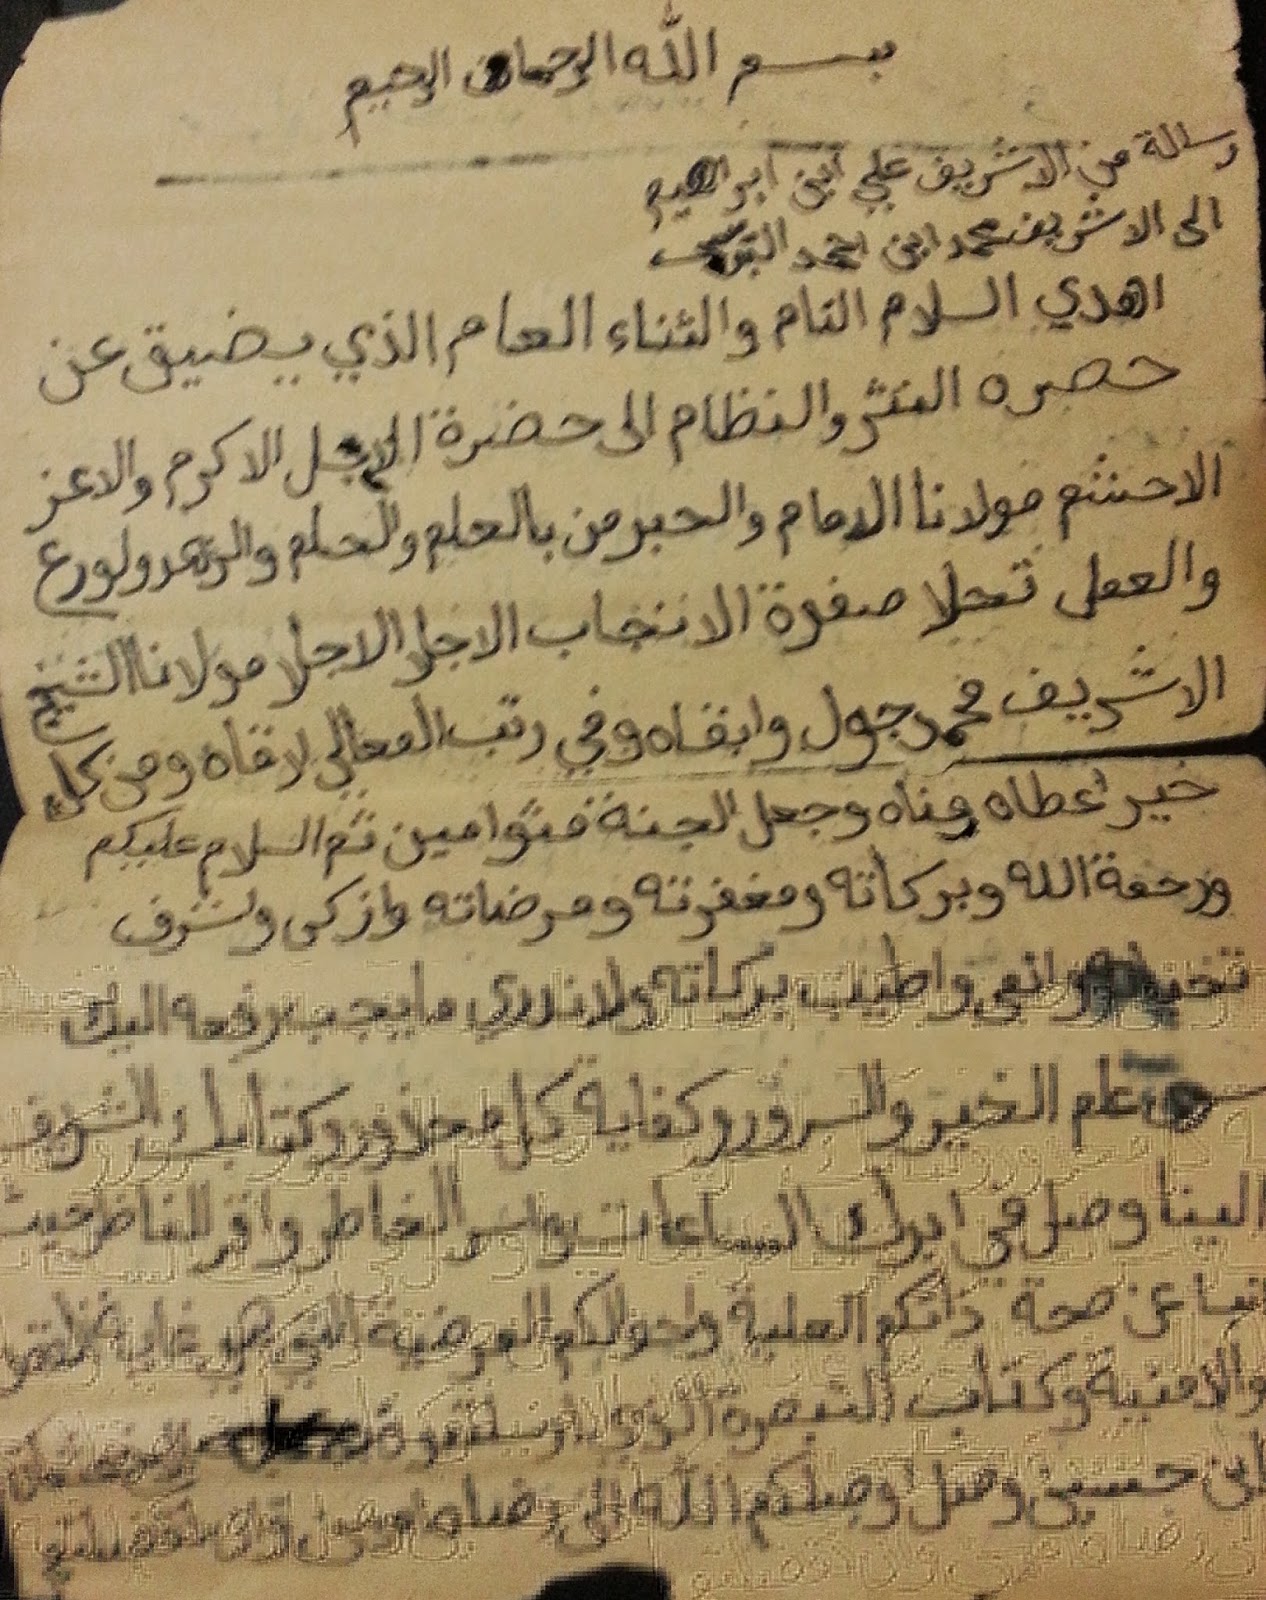 بسم الله الرحمان الرحيم
رسالة من الاشريف علي ابن ابراهيم
الى الاشريف محمد ابن احمد
اهدي السلام التام والثناء العام الذي يضيق عن
حصره النثر والنظام الى حضرة الاجل الاكرم والاعز
الاحشم مولانا الامام والحبر من بالعلم والحلم والزهد ولورع
والعمل تحلا صفوة الانتخاب الاجل الاجلا مولانا الشيخ
الاشريف محمد جول وابقاه وفي رتب المعالي لاقاه ومن كل
خير اعطاه وناه وجعل الجنة مثوا امين ثم السلام عليكم
ورحمة الله وبركاته ومغفرته ومرضاته وازكى وشرف
وانمى واطيب بركاته ولا ندري ما يجب برفعه اليك
سوى علم الخير والسرور وكفاية كل محذور وكتابك الشريف
الينا وصل في ابرك الساعات واسر الخاطر واقر الناظر حيث
انبا عن صحة ذاتكم العلية واحوالكم المرضية التي هي غاية
والامنية وكتاب التبصرة الذي
ابن حسين وصل اوصلكم الله الى رضاه